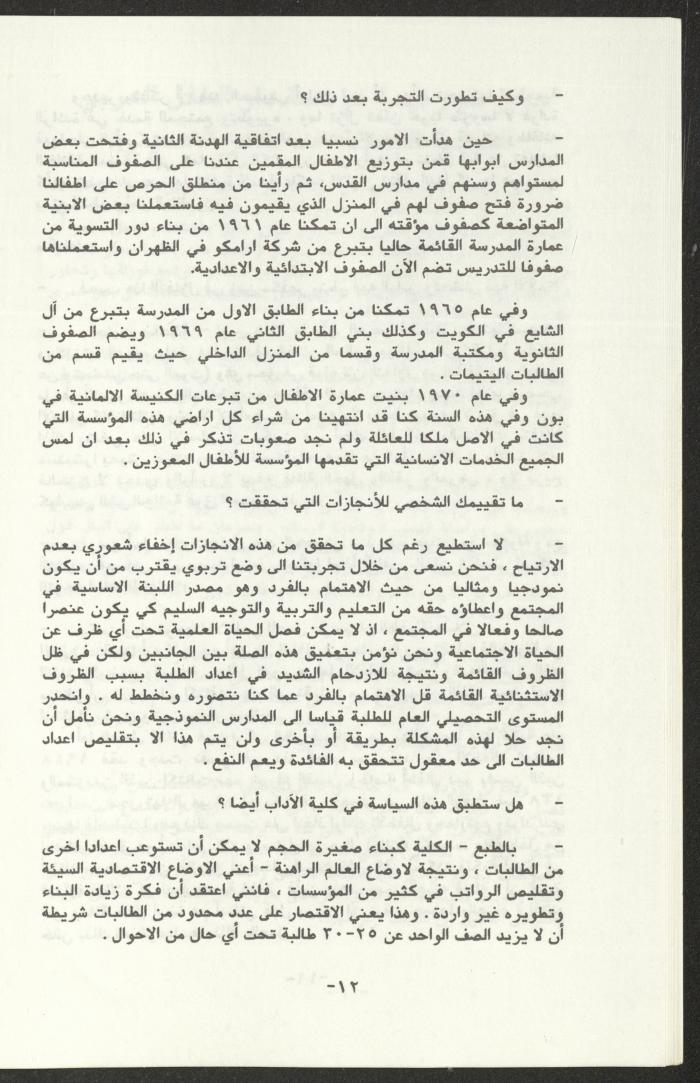 - وكيف تطورت التجربة بعد ذلك ؟
- حين هدأت الامور نسبيا بعد اتفاقية الهدنة الثانية وفتحت بعض
المدارس ابوابها قمن بتوزيع الاطفال المقمين عندنا على الصفوف المناسبة
لمستواهم وسنهم في مدارس القدس، ثم رأينا من منطلق الحرص على اطفالنا
ضرورة فتح صفوف لهم في المنزل الذي يقيمون فيه فاستعملنا بعض الابنية
المتواضعة كصفوف مؤقته الى ان تمكنا عام ١٩٦١ من بناء دور التسوية من
عمارة المدرسة القائمة حاليا بتبرع من شركة ارامكو في الظهران واستعملناها
صفوفا للتدريس تضم الآن الصفوف الابتدائية والاعدادية.
وفي عام ١٩٦٥ تمكنا من بناء الطابق الاول من المدرسة بتبرع من آل
الشايع في الكويت وكذلك بني الطابق الثاني عام ١٩٦٩ ويضم الصفوف
الثانوية ومكتبة المدرسة وقسما من المنزل الداخلي حيث يقيم قسم من
الطالبات اليتيمات .
وفي عام ١٩٧٠ بنيت عمارة الاطفال من تبرعات الكنيسة الالمانية في
بون وفي هذه السنة كنا قد انتهينا من شراء كل اراضي هذه المؤسسة التي
كانت في الاصل ملكا للعائلة ولم نجد صعوبات تذكر في ذلك بعد ان لمس
الجميع الخدمات الانسانية التي تقدمها المؤسسة للأطفال المعوزين .
- ما تقييمك الشخصي للأنجازات التي تحققت ؟
- لا استطيع رغم كل ما تحقق من هذه الانجازات إخفاء شعوري بعدم
الارتياح ، فنحن نسعى من خلال تجربتنا الى وضع تربوي يقترب من أن يكون
نمودجيا ومثاليا من حيث الاهتمام بالفرد وهو مصدر اللبنة الاساسية في
المجتمع واعطاؤه حقه من التعليم والتربية والتوجيه السليم كي يكون عنصرا
صالحا وفعالا في المجتمع ، اذ لا يمكن فصل الحياة العلمية تحت أي ظرف عن
الحياة الاجتماعية ونحن نؤمن بتعميق هذه الصلة بين الجانبين ولكن في ظل
الظروف القائمة ونتيجة للازدحام الشديد في اعداد الطلبة بسبب الظروف
الاستثنائية القائمة قل الاهتمام بالفرد عما كنا نتصوره ونخطط له . وانحدر
المستوى التحصيلي العام للطلبة قياسا الى المدارس النموذجية ونحن نأمل أن
نجد حلا لهذه المشكلة بطريقة أو بأخرى ولن يتم هذا الا بتقليص اعداد
الطالبات الى حد معقول تتحقق به الفائدة ويعم النفع .
- هل ستطبق هذه السياسة في كلية الآداب أيضا ؟
- بالطبع - الكلية كبناء صغيرة الحجم لا يمكن أن تستوعب اعدادا اخرى
من الطالبات ، ونتيجة لاوضاع العالم الراهنة - أعني الاوضاع الاقتصادية السيئة
وتقليص الرواتب في كثير من المؤسسات ، فانني اعتقد أن فكرة زيادة البناء
وتطويره غير واردة . وهذا يعني الاقتصار على عدد محدود من الطالبات شريطة
أن لا يزيد الصف الواحد عن ٢٥-٣٠ طالبة تحت أي حال من الاحوال .
-١٢-